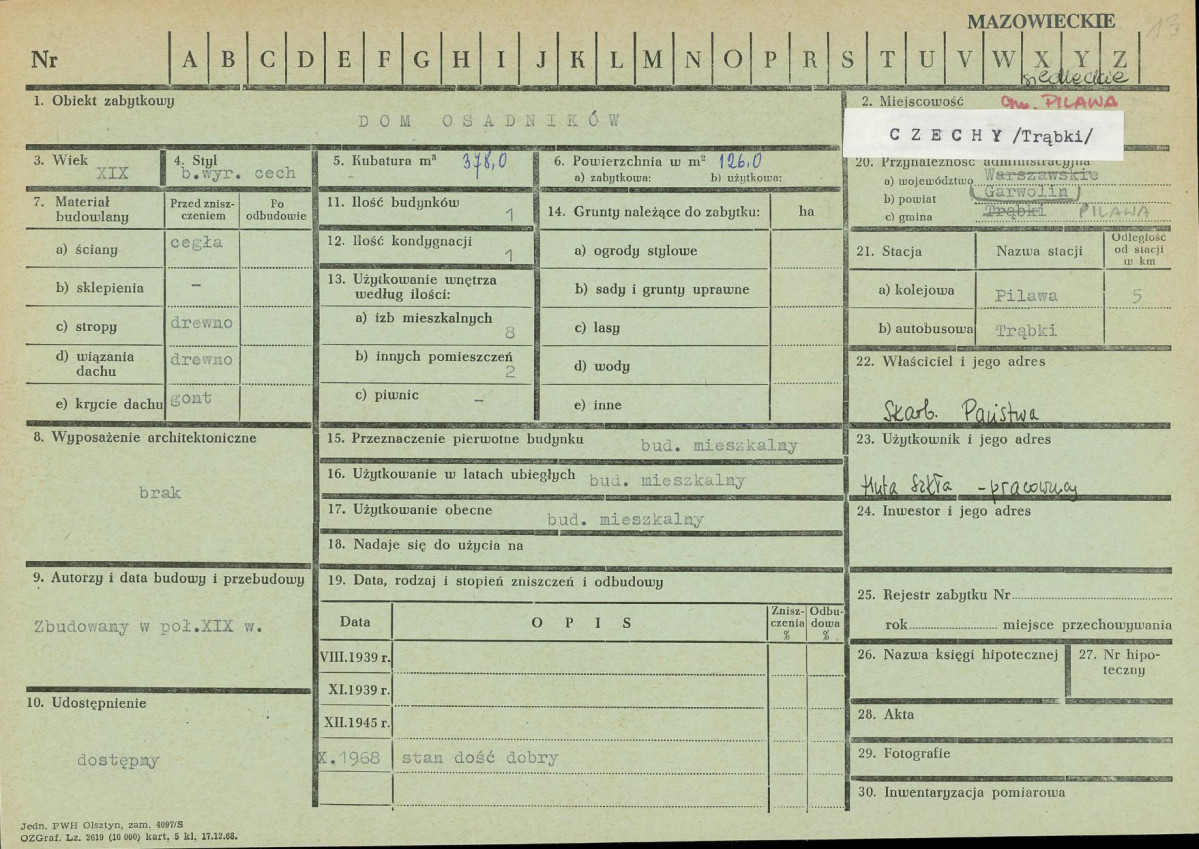 MAZOWIECKIE
13
Nr A B C D E F G H I J K L M N O P R S T U V W X Y Z
siedleckie
1. Obiekt zabytkowy
DOM OSADNIKÓW
2. Miejscowość gm. PILAWA
CZECHY /Trąbki/
3. Wiek
XIX
4. Styl
b.wyr. cech
5. Kubatura m³ 378,0
6. Powierzchnia w m² 126,0
a) zabytkowa: b) użytkowa:
20. Przynależność administracyjna
a) województwo Warszawskie
b) powiat (Garwolin)
c) gmina Trąbki PILAWA
7. Materiał budowlany
Przed znisz-
czeniem
Po
odbudowie
a) ściany cegła
b) sklepienia –
c) stropy drewno
d) wiązania
dachu drewno
e) krycie dachu gont
11. Ilość budynków
1
12. Ilość kondygnacji
1
13. Użytkowanie wnętrza
według ilości:
a) izb mieszkalnych
8
b) innych pomieszczeń
2
c) piwnic –
14. Grunty należące do zabytku: ha
a) ogrody stylowe
b) sady i grunty uprawne
c) lasy
d) wody
e) inne
21. Stacja Nazwa stacji
Odległość
od stacji
w km
a) kolejowa Pilawa 5
b) autobusowa Trąbki
22. Właściciel i jego adres
Skarb. Państwa
8. Wyposażenie architektoniczne
brak
15. Przeznaczenie pierwotne budynku bud. mieszkalny
16. Użytkowanie w latach ubiegłych bud. mieszkalny
17. Użytkowanie obecne bud. mieszkalny
18. Nadaje się do użycia na
23. Użytkownik i jego adres
Huta Szkła - pracownicy
24. Inwestor i jego adres
9. Autorzy i data budowy i przebudowy
Zbudowany w poł.XIX w.
10. Udostępnienie
dostępny
19. Data, rodzaj i stopień zniszczeń i odbudowy
Data OPIS
Znisz-
czenia
%
Odbu-
dowa
%
VIII.1939 r.
XI.1939 r.
XII.1945 r.
X.1968 stan dość dobry
25. Rejestr zabytku Nr
rok miejsce przechowywania
26. Nazwa księgi hipotecznej
27. Nr hipo-
teczny
28. Akta
29. Fotografie
30. Inwentaryzacja pomiarowa
Jedn. PWH Olsztyn, zam. 4097/S
OZGraf. Lz. 2619 (10 000) kart. 5 kl. 17.12.68.